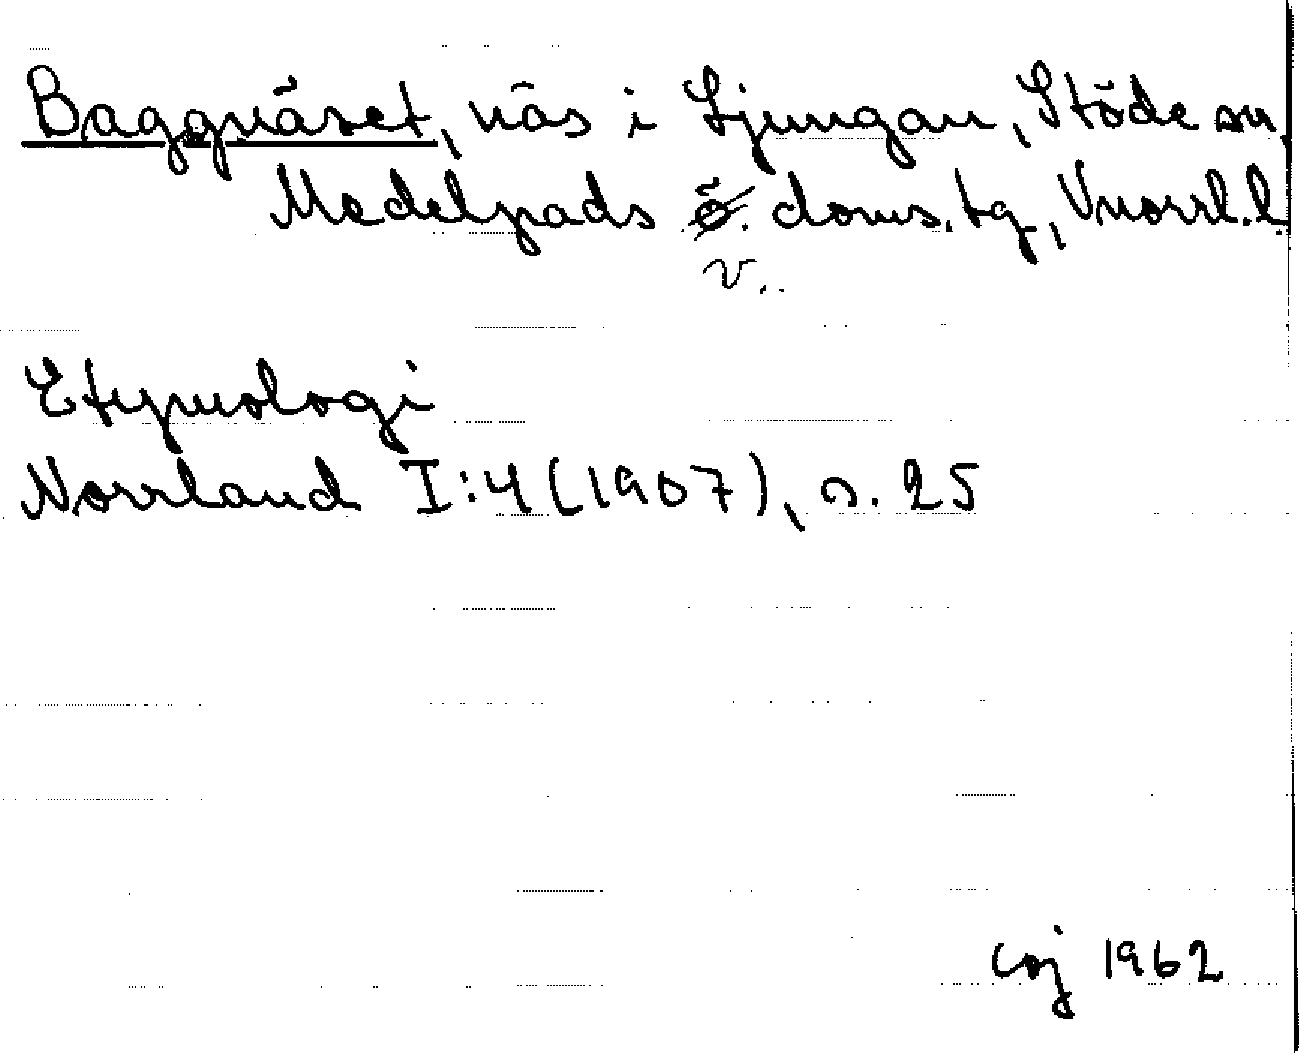 Baggnäset, näs i Ljungan, Stöde sn,
Medelpads ö. doms. tg, Vnorrl. l.
v.
Etymologi
Norrland I:4 (1907), s. 25
coj 1962